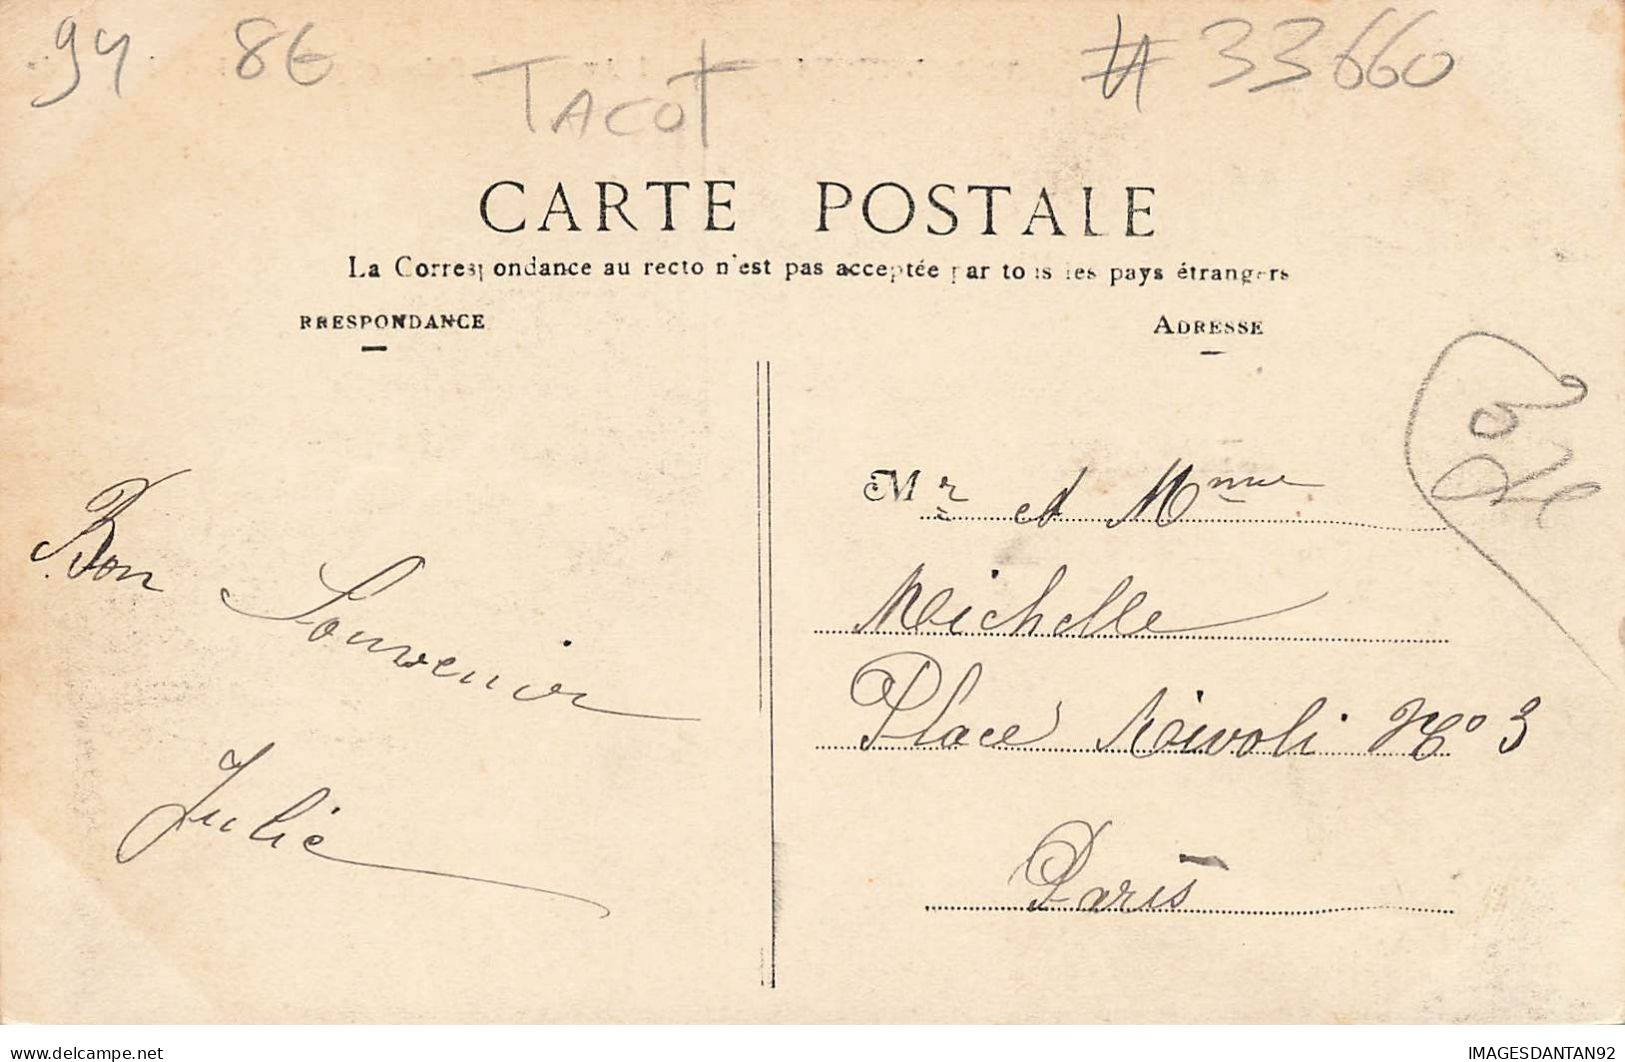 94 8€
TACOT
# 33660
CARTE POSTALE
La Correspondance au recto n'est pas acceptée par tous les pays étrangers
RRESPONDANCE
ADRESSE
Bon Souvenir
Julie
Mr et Mme
Michelle
Place Rivoli No 3
Paris
IMAGESDANTAN92
delcampe.net